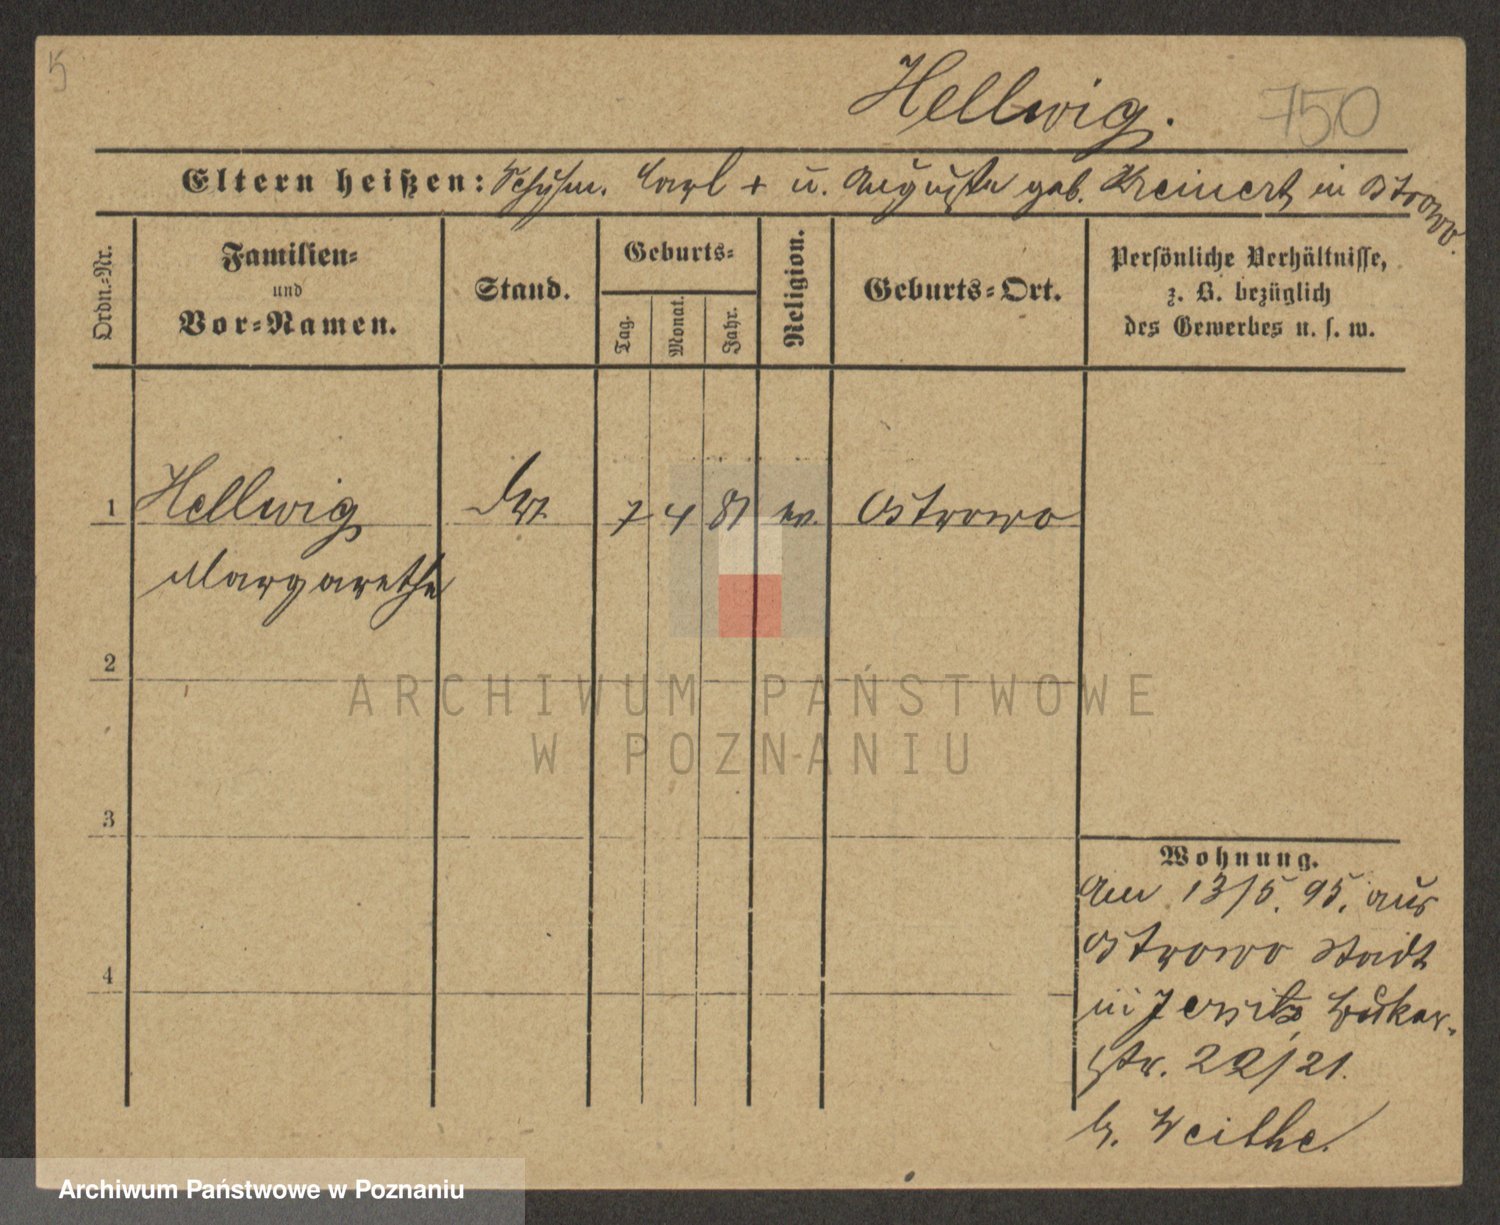 5
Hellwig. 750
Eltern heißen: Carl + u. Auguste geb. Kreinert in Ostrowo.
Ordn.-Nr.
Familien-
und
Vor-Namen.
Stand.
Geburts-
Tag.
Monat.
Jahr.
Religion.
Geburts-Ort.
Persönliche Verhältnisse,
z. B. bezüglich
des Gewerbes u. s. w.
1 Hellwig 7 4 81 ev. Ostrowo
Margarethe
2
3
4
Wohnung.
Am 13/5. 95. aus
Ostrowo Stadt
in Jersitz,
str. 22/21.
b. Weithe.
ARCHIWUM PAŃSTWOWE
W POZNANIU
Archiwum Państwowe w Poznaniu